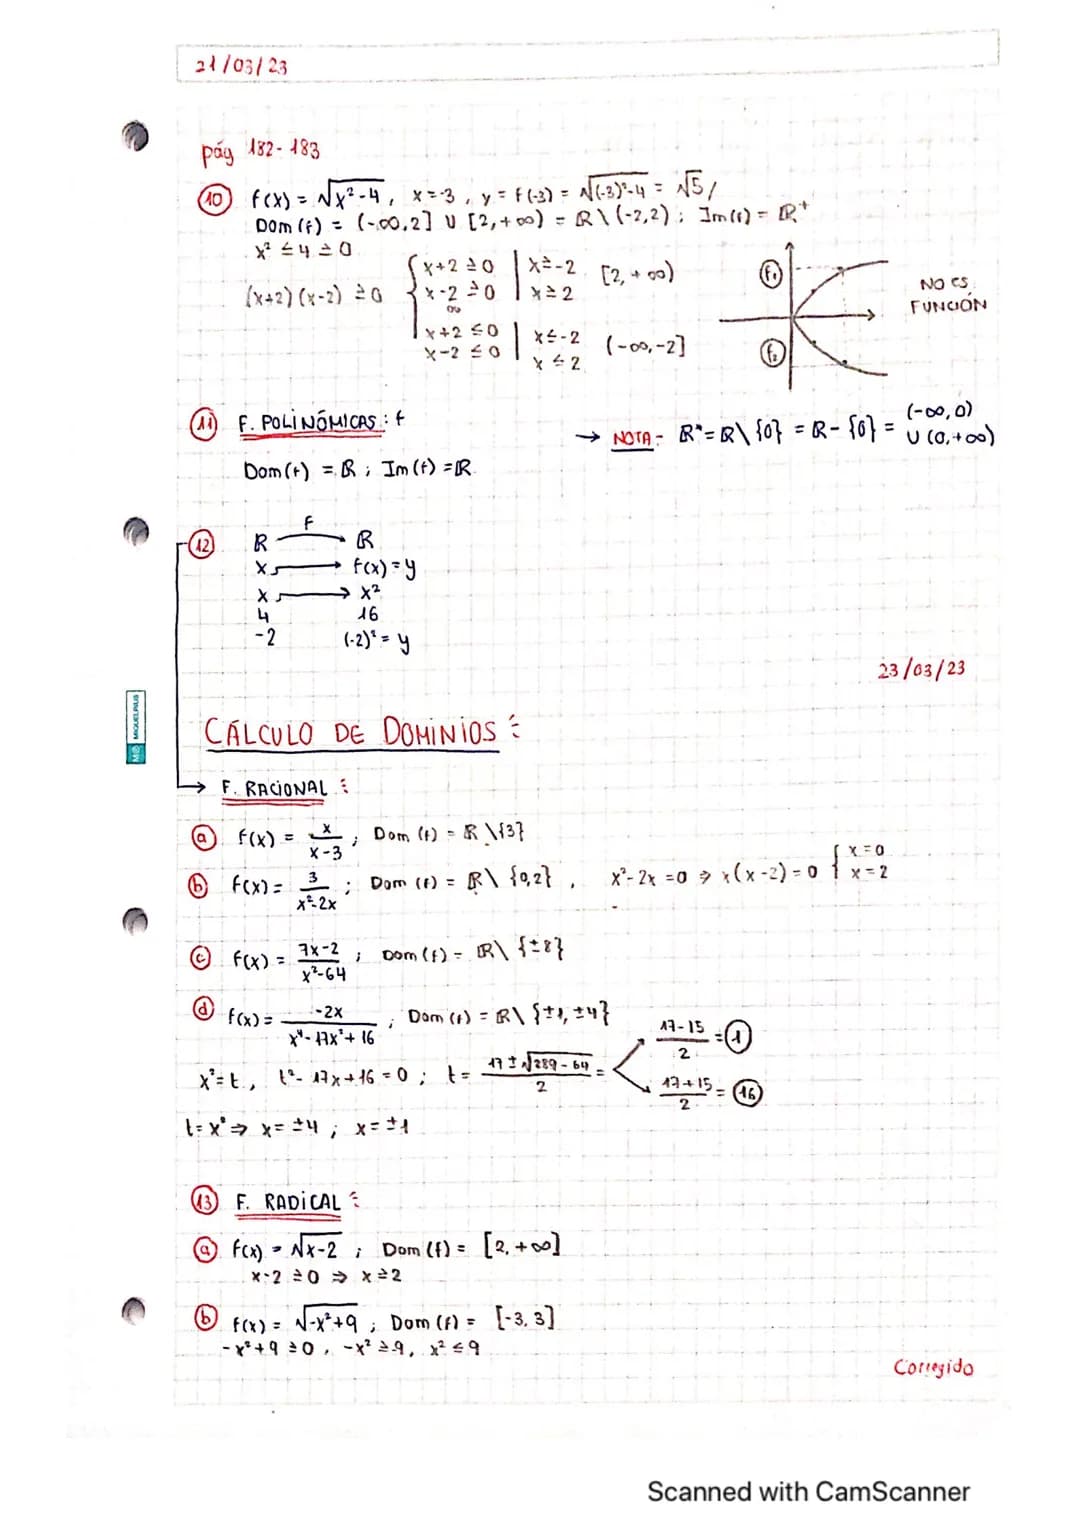 21/03/23
pág 182-183
10 f(x) = √x²-4, x=-3, y = f(-3) = √(-3)²-4 = √5/
Dom (f) = (-∞,2] U [2,+∞) = R\(-2,2); Im(f) = R⁺
x² ≤ 4 ≥ 0
(x+2)(x-2) ≥ 0 { x+2 ≥ 0 | x≥-2 [2,+∞)
x-2 ≥ 0 | x≥2
x+2 ≤ 0 | x≤-2 (-∞,-2]
x-2 ≤ 0 | x≤2
f₁
f₂
NO ES FUNCIÓN
11 F. POLINÓMICAS: f
Dom(f) = R; Im(f) = R
→ NOTA- R*= R\{0} = R-{0} = (-∞,0) U (0,+∞)
12 R f→ R
x → f(x)=y
x → x²
4 16
-2 (-2)² = y
23/03/23
MIQUELRIUS
CÁLCULO DE DOMINIOS:
→ F. RACIONAL:
a f(x) = x/x-3; Dom (f) = R\{3}
b f(x) = 3/x²-2x; Dom (f) = R\{0,2}, x²-2x=0 → x(x-2)=0 { x=0 x=2
c f(x) = 7x-2/x²-64; Dom (f) = R\{±8}
d f(x) = -2x/x⁴-17x²+16; Dom (f) = R\{±1,±4}
x²=t, t²-17x+16=0; t= 17±√289-64/2 = 17-15/2 = 1
17+15/2 = 16
t=x² ⇒ x=±4; x=±1
13 F. RADICAL:
a f(x) = √x-2; Dom (f) = [2,+∞]
x-2 ≥ 0 ⇒ x≥2
b f(x) = √-x²+9; Dom (f) = [-3,3]
-x²+9 ≥ 0, -x² ≥-9, x² ≤ 9
Corregido
Scanned with CamScanner